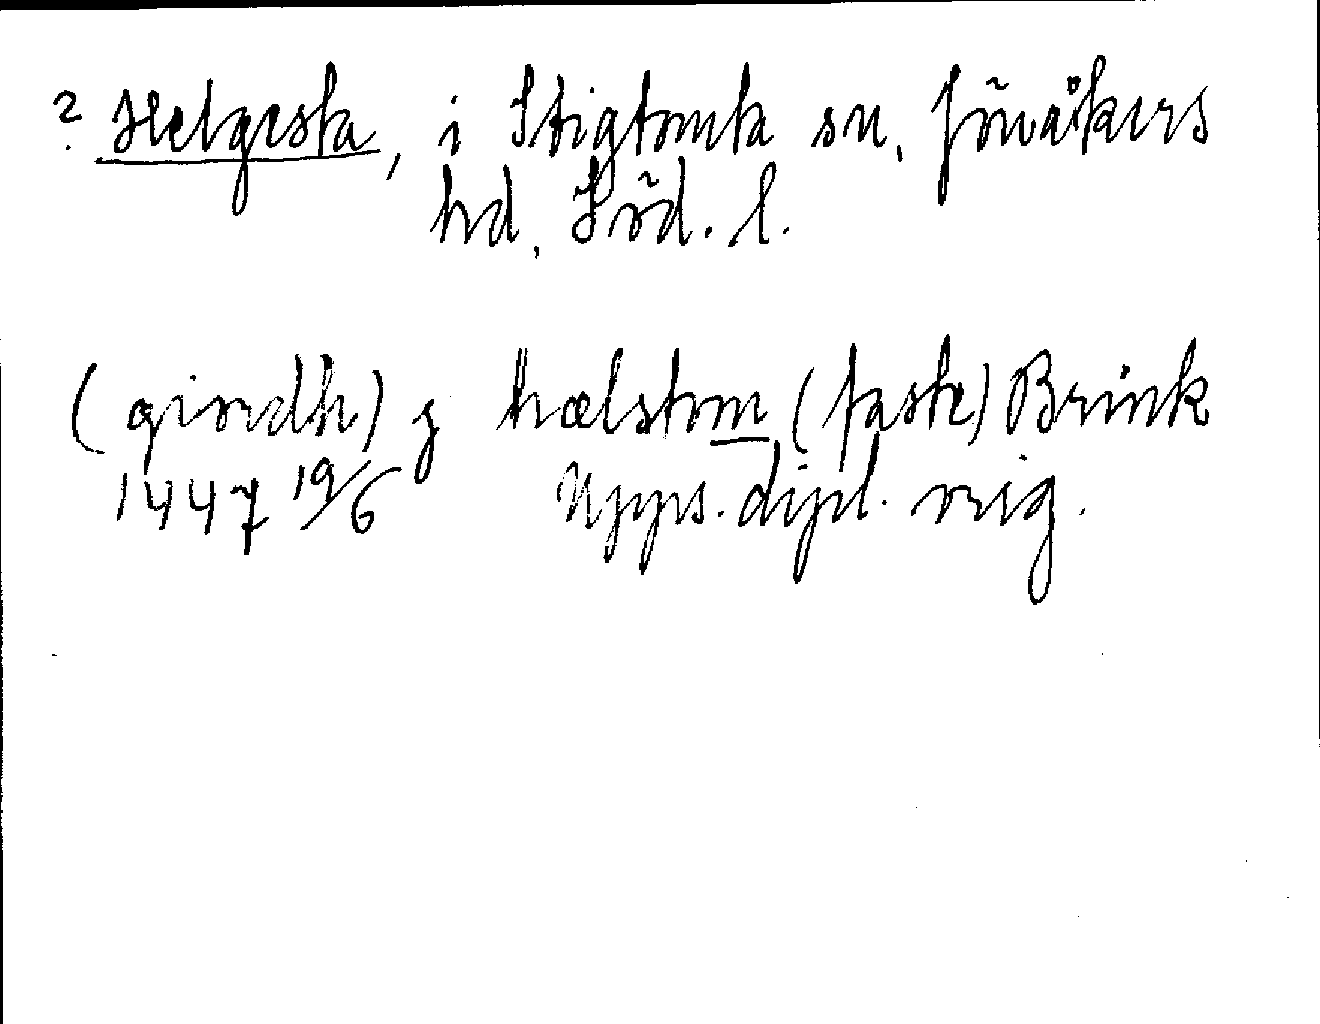 ? Helgesta, i Stigtomta sn, Jönåkers
hd, Söd. l.
(giordh) j hælstom (faste) Brink
1447 19/6 Upps. dipl. orig.